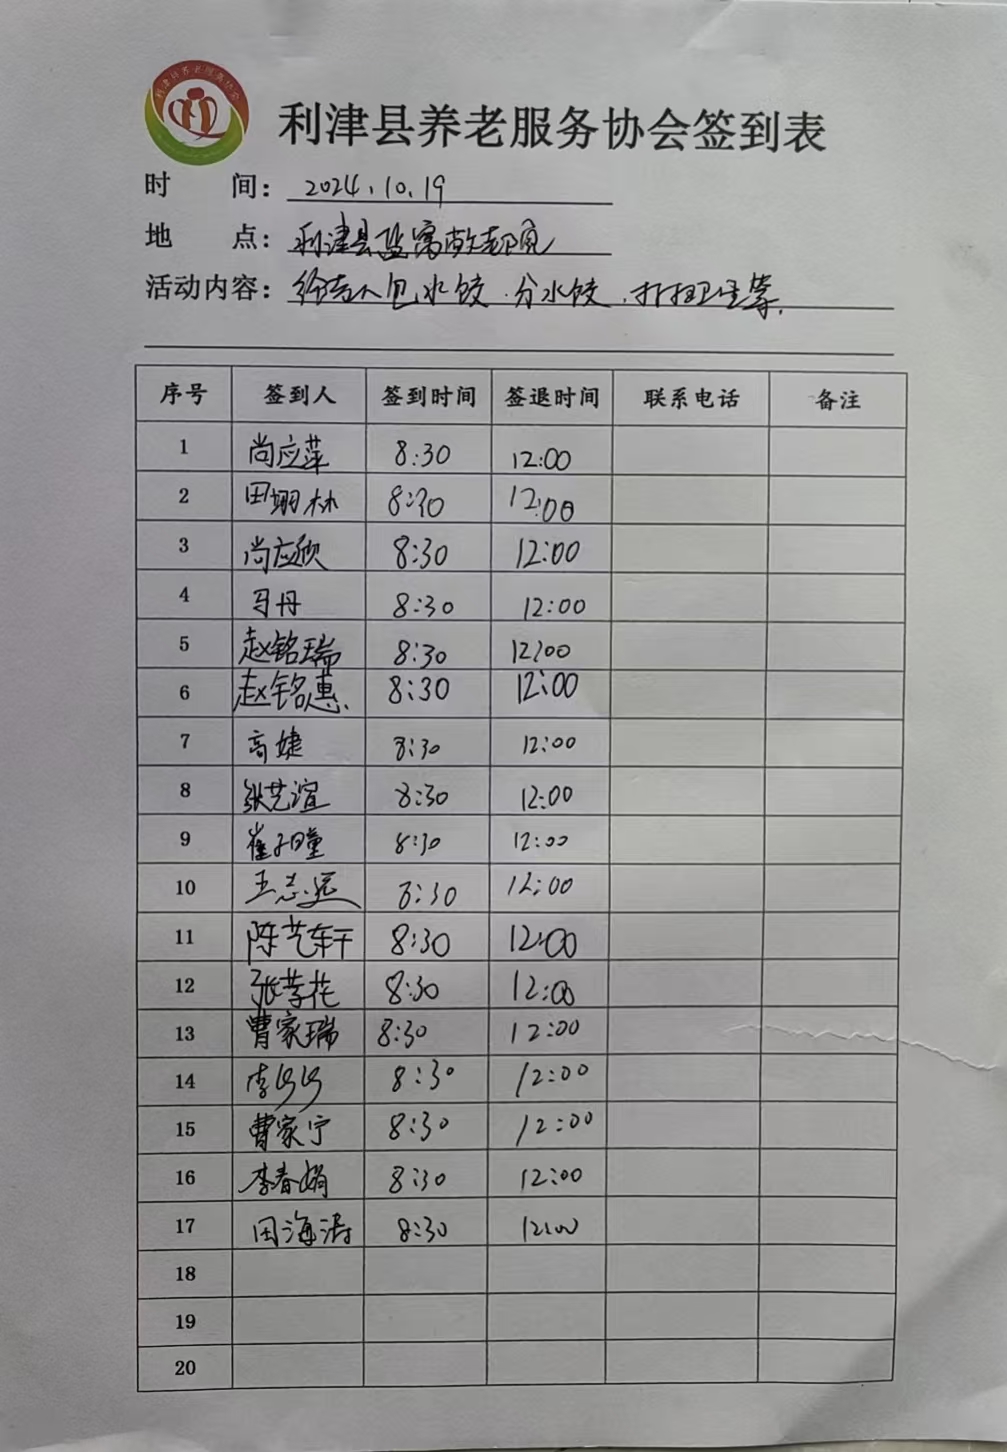 利津县养老服务协会
利津县养老服务协会签到表
时 间：2024.10.19
地 点：利津县盐窝敬老院
活动内容：给老人包水饺.分水饺.打扫卫生等.
序号 签到人 签到时间 签退时间 联系电话 备注
1 尚应萍 8:30 12:00
2 田翊林 8:30 12:00
3 尚应欣 8:30 12:00
4 马丹 8:30 12:00
5 赵铭瑞 8:30 12:00
6 赵铭惠. 8:30 12:00
7 高婕 8:30 12:00
8 张艺渲 8:30 12:00
9 崔子瞳 8:30 12:00
10 王志远 8:30 12:00
11 陈艺轩 8:30 12:00
12 张花 8:30 12:00
13 曹家瑞 8:30 12:00
14 李 8:30 12:00
15 曹家宁 8:30 12:00
16 李春娟 8:30 12:00
17 田海涛 8:30 12:00
18
19
20